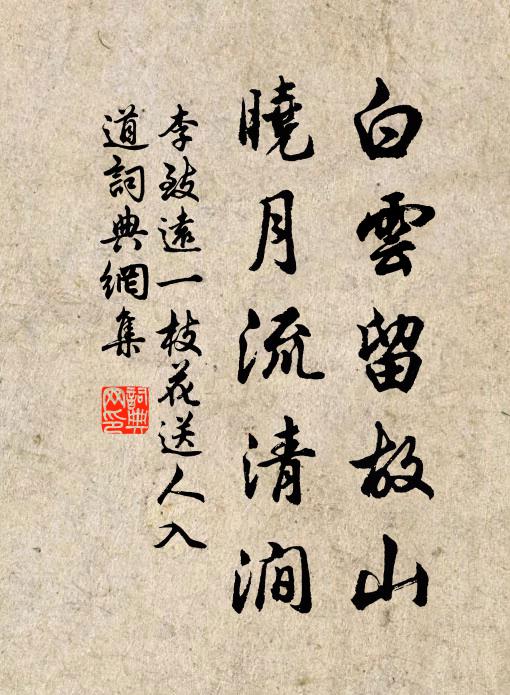 白雲留故山
曉月流清澗
李致遠一枝花送人入
道詞典網集
詞典
网印